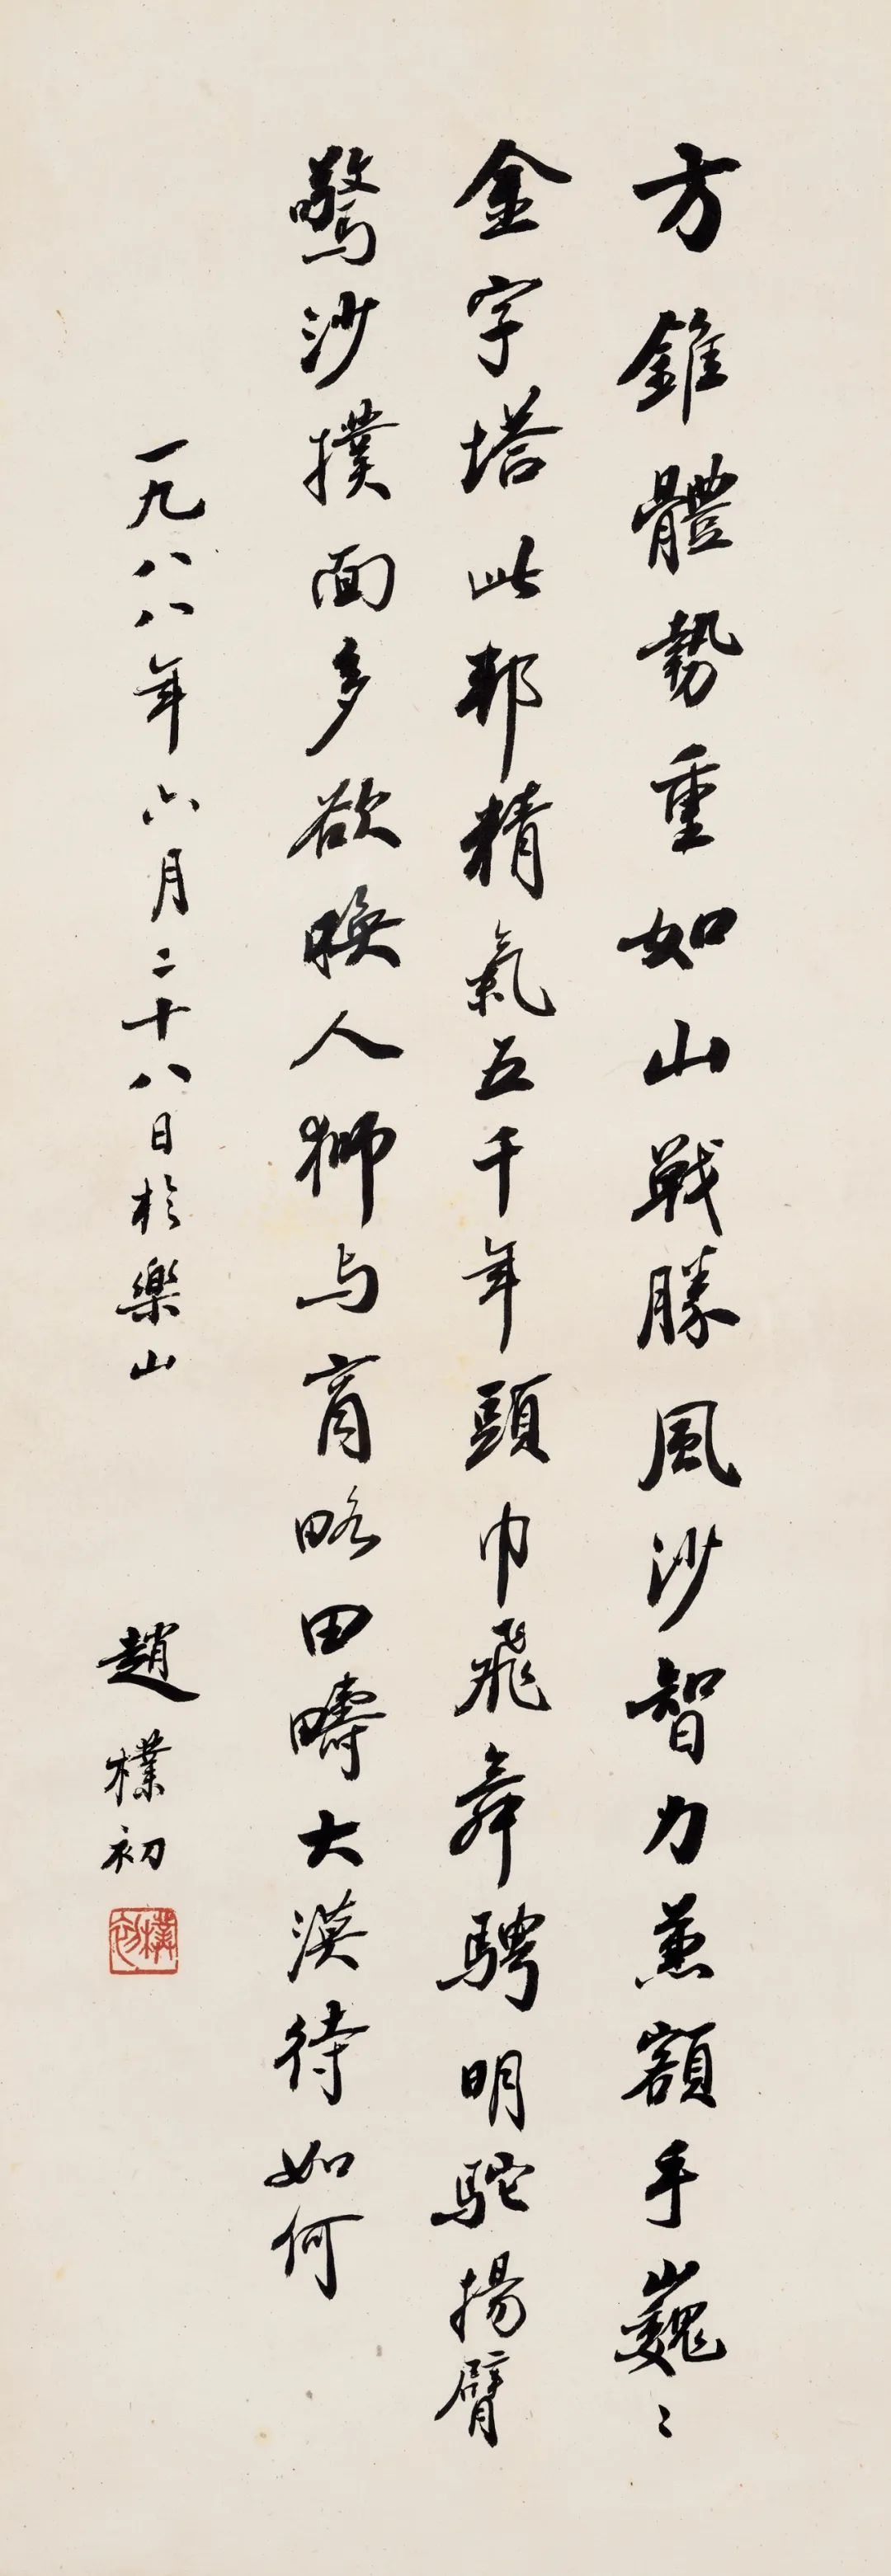 方錐體勢重如山戰勝風沙智力兼額手巍〻
金字塔此邦精氣五千年頭巾飛舞騁明駝揚臂
驚沙撲面多欲喚人獅与育略田疇大漠待如何
一九八八年六月二十八日於樂山
趙樸初
樸初